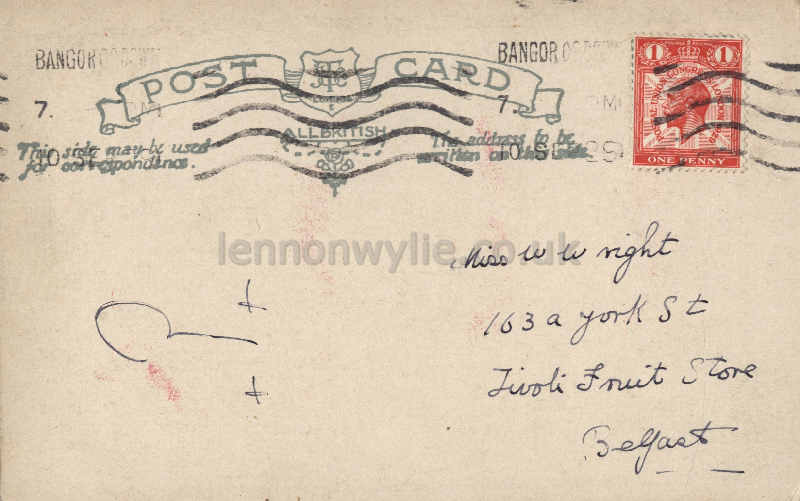 BANGOR CO DOWN
BANGOR CO DOWN
POST CARD
ALL BRITISH
7.
7. PM
10 SE
10 SE 29
This side may be used
for correspondence.
The address to be
written on this side
POSTAL UNION CONGRESS LONDON 1929
POSTAGE REVENUE
1 1
ONE PENNY
lennonwylie.co.uk
Miss W Wright
163 a York St
Tivoli Fruit Store
Belfast